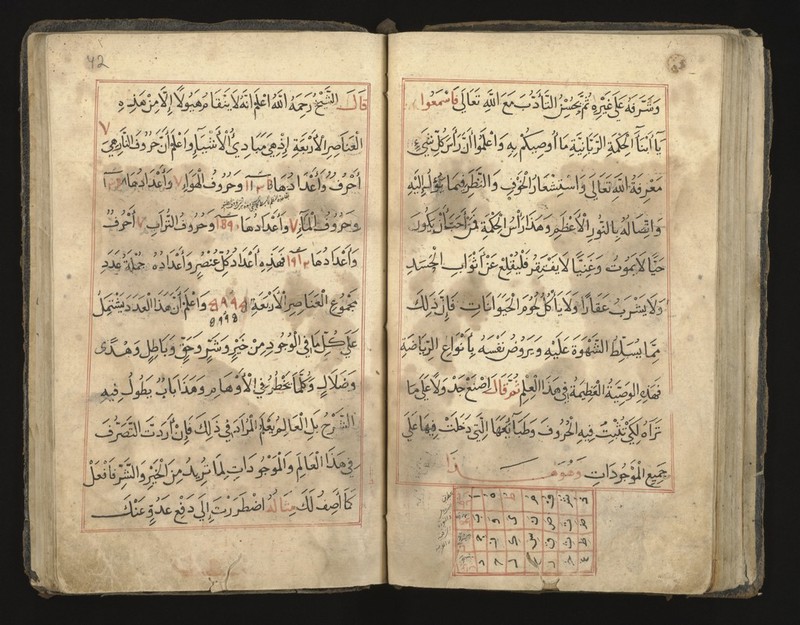 وشرفه على غيره ثم يحسن التأدب مع الله تعالى فاسمعوا
يا أبناء الحكمة الربانية ما أوصيكم به واعلموا أن رأس كل شيء
معرفة الله تعالى واستشعار الخوف والنظر فيما يؤل إليه
واتصاله بالنور الأعظم وهذا رأس الحكمة لمن أحب أن يكون
حيا لا يموت وغنيا لا يفتقر فليقلع عن أثواب الجسد
ولا يشرب عقارا ولا يأكل لحوم الحيوانات فإن ذلك
مما يسلط الشهوة عليه ويروض نفسه بأنواع الرياضة
فهذه الوصية العظيمة في هذا العلم ثم قال اصنع جدولا على ما
تراه لكي تثبت فيه الحروف وطبائعها التي دخلت فيها على
جميع الموجودات وهو هذا
42
قال الشيخ رحمه الله اعلم انه لا ينقام هيولا إلا من هذه
العناصر الأربعة إذ هي مبادي الأشياء واعلم أن حروف النار هي ٧
أحرف وأعدادها وحروف الهواء ٧ وأعدادها
وحروف الماء ٧ وأعدادها وحروف التراب ٧ أحرف
وأعدادها فهذه أعداد كل عنصر وأعداده جملة عدد
مجموع العناصر الأربعة واعلم أن هذا العدد يشتمل
على كل ما في الوجود من خير وشر وحق وباطل وهدى
وضلال وكلما يخطر في الأوهام وهذا باب يطول فيه
الشرح بل العالم يعلم المراد في ذلك فإن أردت التصرف
في هذا العالم والموجودات بما تريد من الخير والشر فافعل
كما أصف لك مثاله اضطررت إلى دفع عدو عنك